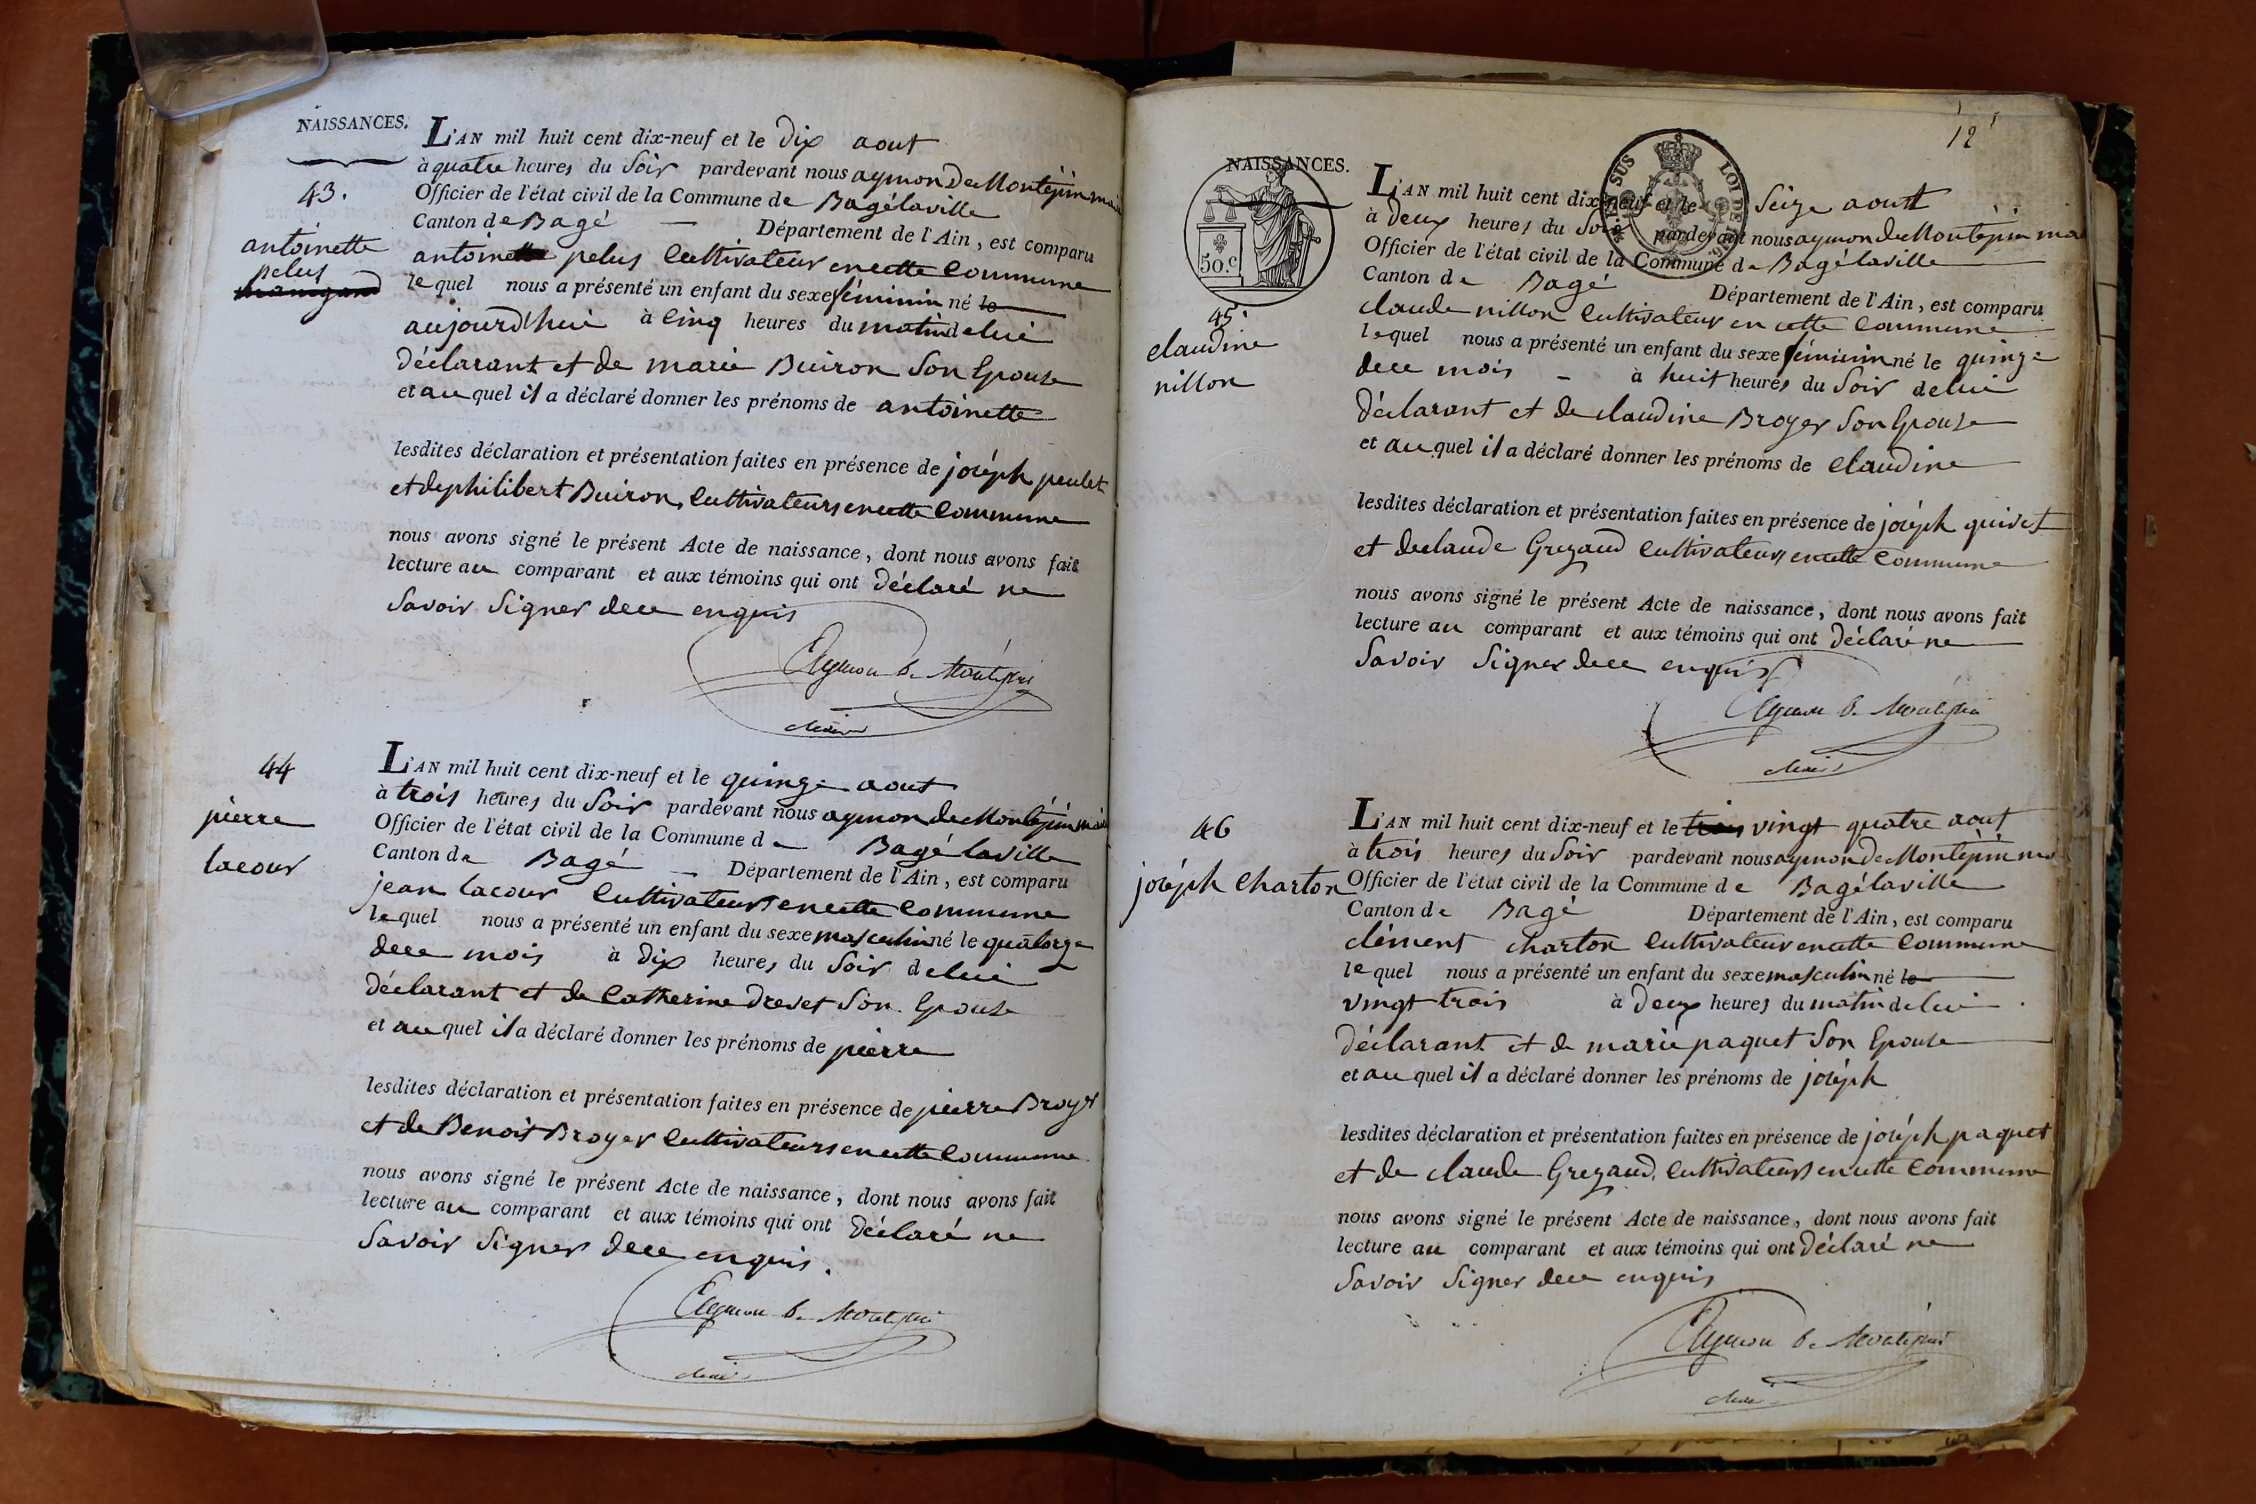 NAISSANCES.
43.
antoinette
pelus
L'AN mil huit cent dix-neuf et le dix aout
à quatre heures du Soir pardevant nous aymon de Montépin mai
Officier de l'état civil de la Commune de Bagélaville
Canton de Bagé — Département de l'Ain, est comparu
antoine pelus Cultivateur en cette Commune
lequel nous a présenté un enfant du sexe féminin né le
aujourd'hui à Cinq heures du matin de lui
déclarant et de marie Buiron Son Epouse
et au quel il a déclaré donner les prénoms de antoinette
lesdites déclaration et présentation faites en présence de joséph peulet
et de philibert Buiron, Cultivateurs en cette Commune
nous avons signé le présent Acte de naissance, dont nous avons fait
lecture au comparant et aux témoins qui ont déclaré ne
Savoir Signer de ce enquis
Aymon de Montépin
Maire
44
pierre
lacour
L'AN mil huit cent dix-neuf et le quinze aout
à trois heures du Soir pardevant nous aymon de Montépin mai
Officier de l'état civil de la Commune de Bagé laville
Canton de Bagé — Département de l'Ain, est comparu
jean lacour Cultivateur en cette Commune
lequel nous a présenté un enfant du sexe masculin né le quatorze
de ce mois à dix heures du Soir de lui
déclarant et de Catherine drevet Son Epouse
et au quel il a déclaré donner les prénoms de pierre
lesdites déclaration et présentation faites en présence de pierre Broyer
et de Benoit Broyer Cultivateurs en cette Commune
nous avons signé le présent Acte de naissance, dont nous avons fait
lecture au comparant et aux témoins qui ont déclaré ne
Savoir Signer de ce enquis.
Aymon de Montépin
Maire
12
NAISSANCES.
50.c
SUS LOI DE
45.
claudine
nillon
L'AN mil huit cent dix-neuf et le Seize aout
à deux heures du Soir pardevant nous aymon de Montépin ma
Officier de l'état civil de la Commune de Bagélaville
Canton de Bagé Département de l'Ain, est comparu
claude nillon Cultivateur en cette Commune
lequel nous a présenté un enfant du sexe féminin né le quinze
de ce mois — à huit heures du Soir de lui
déclarant et de claudine Broyer Son Epouse
et au quel il a déclaré donner les prénoms de Claudine
lesdites déclaration et présentation faites en présence de joséph guivet
et de claude Grezaud Cultivateurs en cette Commune
nous avons signé le présent Acte de naissance, dont nous avons fait
lecture au comparant et aux témoins qui ont déclaré ne
Savoir Signer de ce enquis
Aymon de Montépin
Maire
46
joséph Charton
L'AN mil huit cent dix-neuf et le trois vingt quatre aout
à trois heures du Soir pardevant nous aymon de Montépin ma
Officier de l'état civil de la Commune de Bagélaville
Canton de Bagé Département de l'Ain, est comparu
clément charton Cultivateur en cette Commune
lequel nous a présenté un enfant du sexe masculin né le
vingt trois à deux heures du matin de lui
déclarant et de marie paquet Son Epouse
et au quel il a déclaré donner les prénoms de joséph
lesdites déclaration et présentation faites en présence de joséph paquet
et de claude Grezaud, Cultivateurs en cette Commune
nous avons signé le présent Acte de naissance, dont nous avons fait
lecture au comparant et aux témoins qui ont déclaré ne
Savoir Signer de ce enquis
Aymon de Montépin
Maire